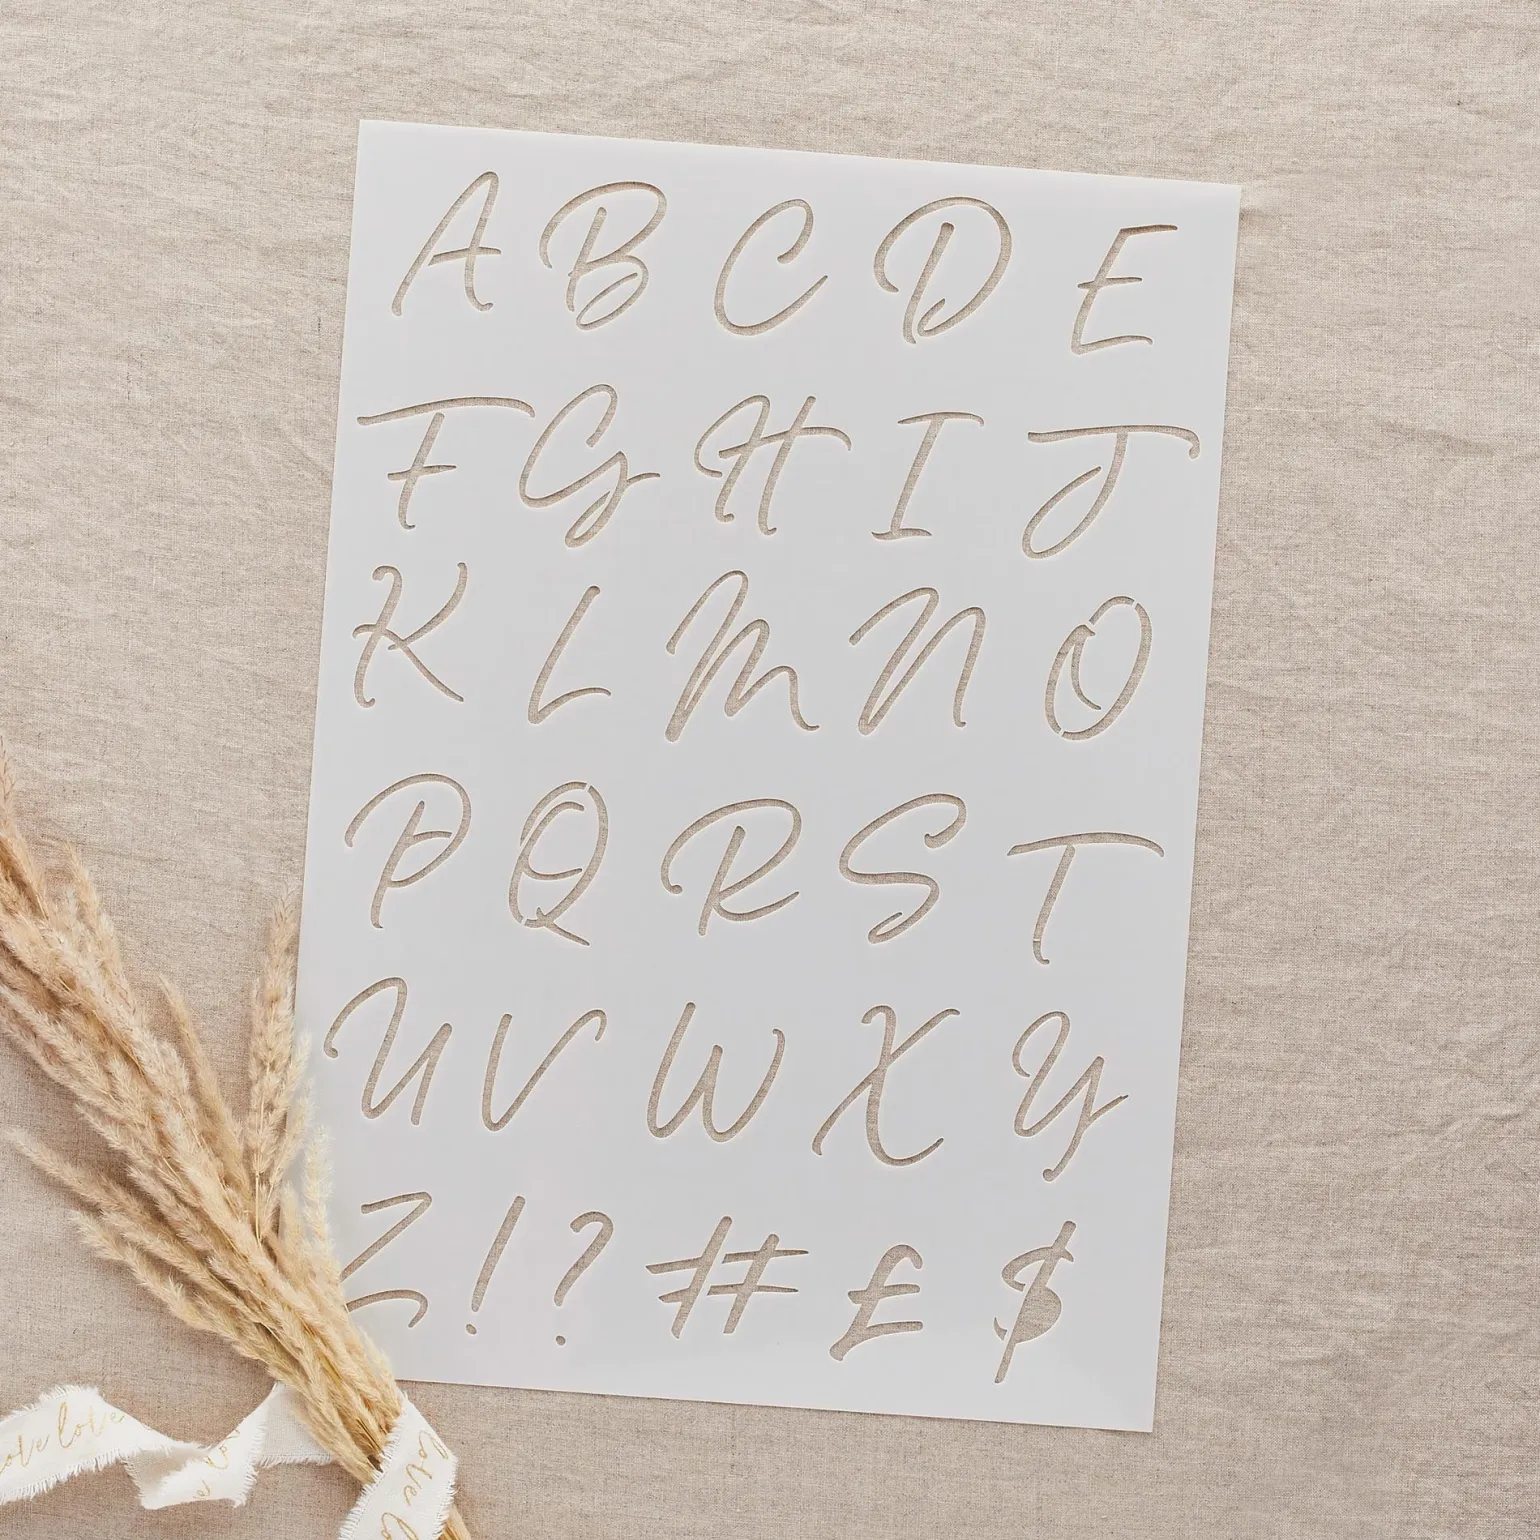 A B C D E
F G H I J
K L M N O
P Q R S T
U V W X Y
Z ! ? # £ $
love love
love